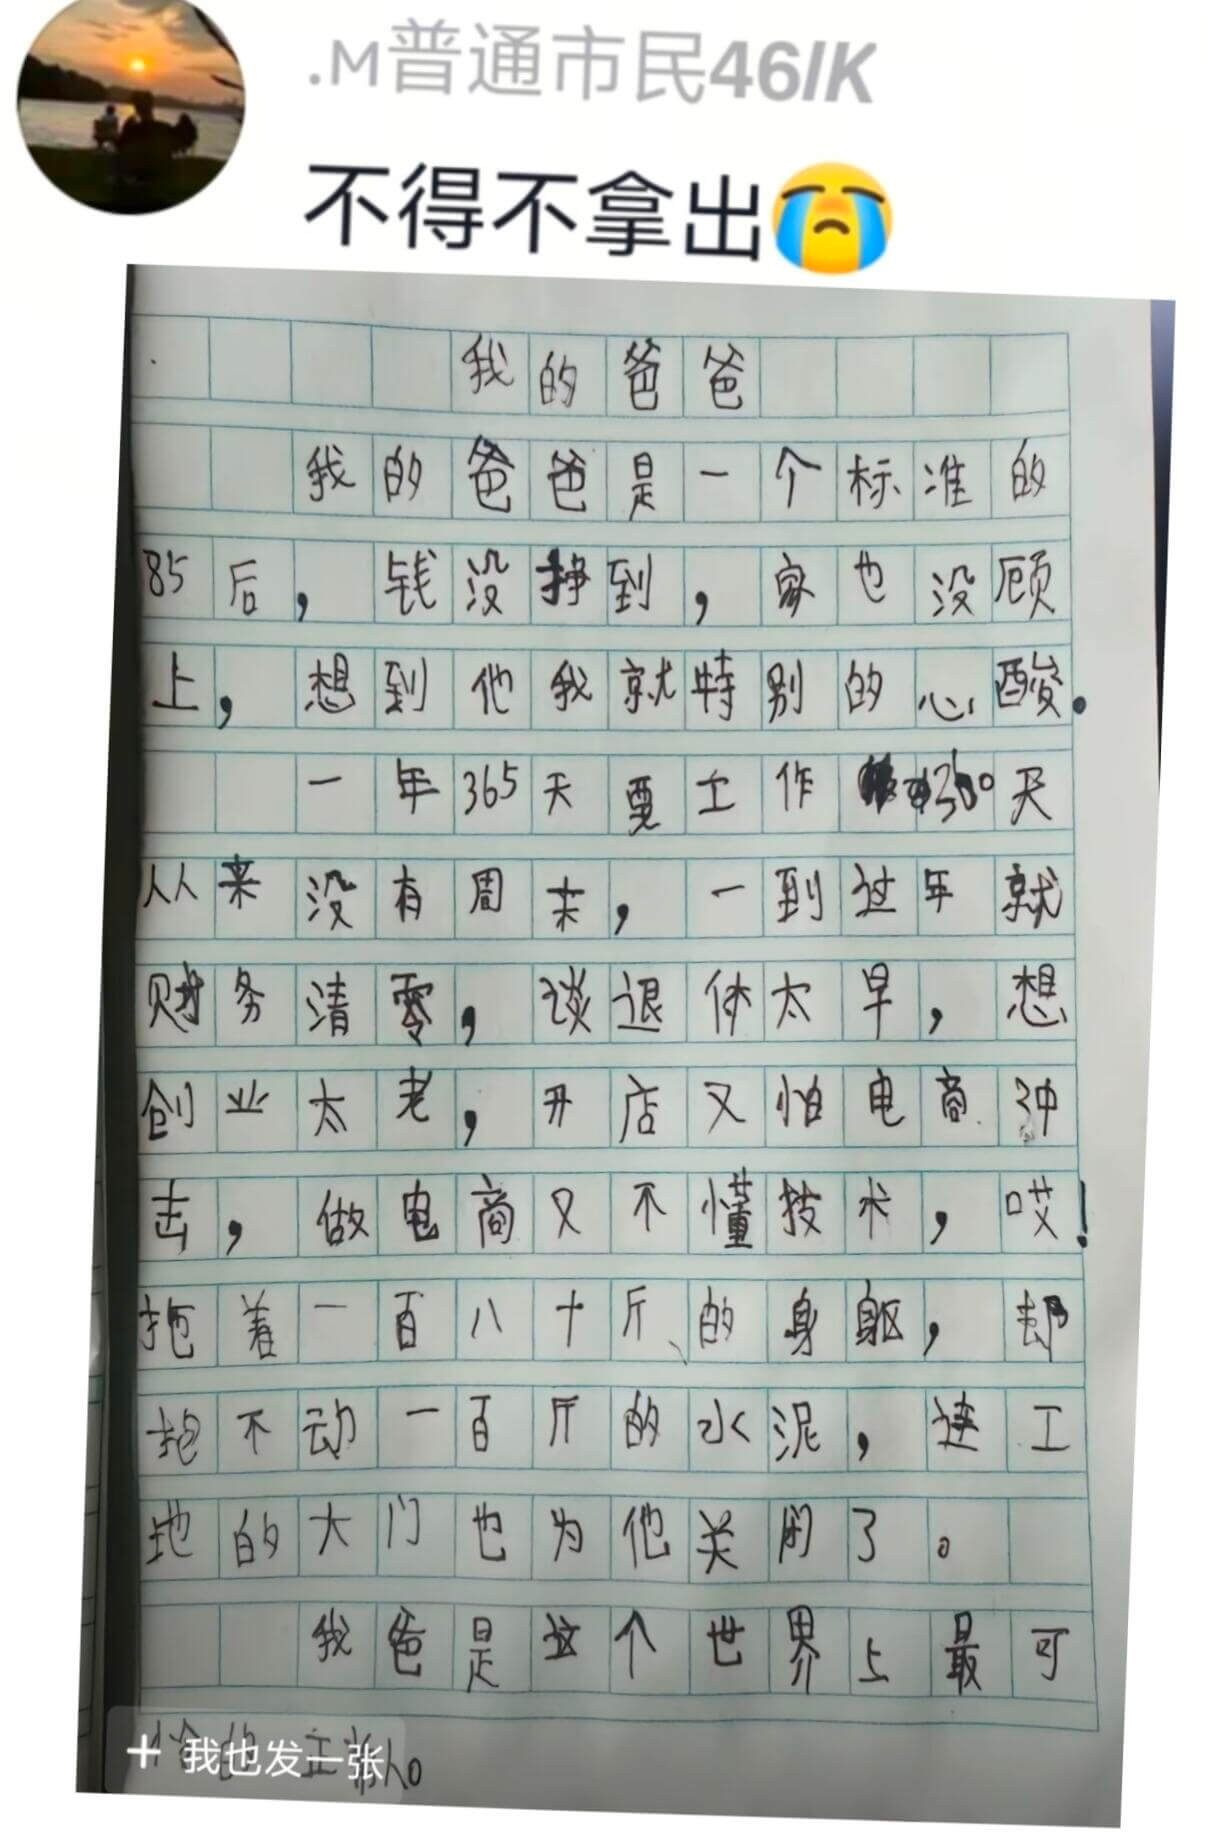 .M普通市民46IK
不得不拿出😭
我的爸爸
我的爸爸是一个标准的
85后，钱没挣到，家也没顾
上，想到他我就特别的心酸.
一年365天要工作360天
从来没有周末，一到过年就
财务清零，谈退休太早，想
创业太老，开店又怕电商冲
击，做电商又不懂技术，哎！
拖着一百八十斤、的身躯，却
抱不动一百斤的水泥，连工
地的大门也为他关闭了。
我爸是这个世界上最可
怜的正常人。
+ 我也发一张